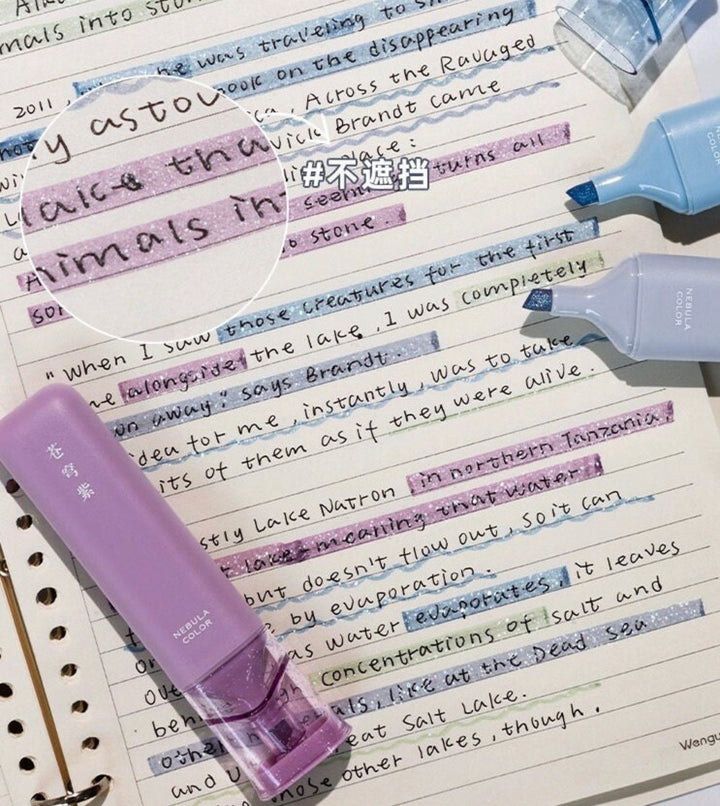 mals into ston
2011, he was traveling to
ook on the disappearing
ca, Across the Ravaged
Vick Brandt came
lace:
seem turns all
to stone.
y astou
lake tha
Animals in
#不遮挡
those creatures for the first
"When I saw
alongside the lake, I was completely
away" says Brandt.
idea for me, instantly, was to take
its of them as if they were alive.
stly Lake Natron in northern Tanzania,
t lake-meaning that water
but doesn't flow out, so it can
by evaporation.
as water evaporates, it leaves
concentrations of salt and
als, like at the Dead Sea
eat Salt Lake.
those other lakes, though.
苍穹紫
NEBULA COLOR
NEBULA COLOR
Wengu